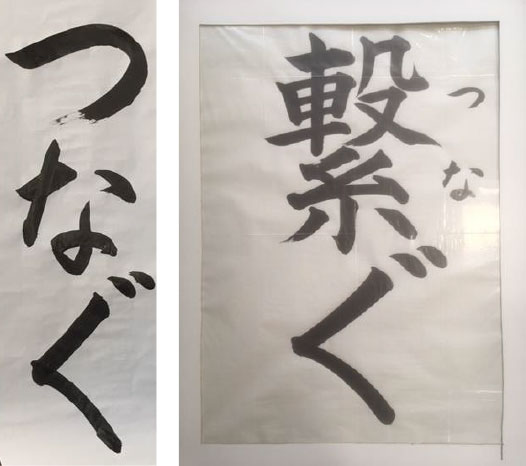 つなぐ
繋ぐ
つな